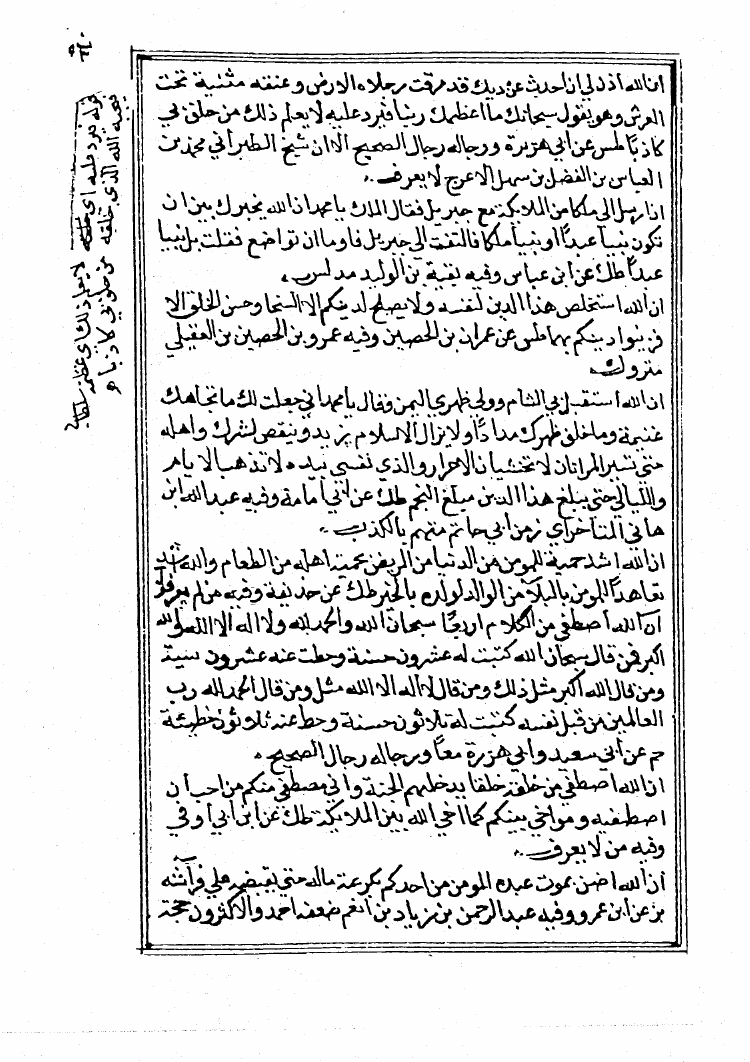 ان الله اذن لي ان احدث عن ديك قد مرقت رجلاه الارض وعنقه مثنية تحت
العرش وهو يقول سبحانك ما اعظمك ربنا فيرد عليه لا يعلم ذلك من حلف بي
كاذبا طس عن ابي هريرة ورجاله رجال الصحيح الا ان شيخ الطبراني محمد بن
العباس بن الفضل بن سهيل الاعرج لا يعرف
ان الله ارسل الي ملكا من الملايكة مع جبريل فقال الملك يا محمد ان الله يخيرك بين ان
تكون نبيا عبدا او نبيا ملكا فالتفت الى جبريل فاومأ ان تواضع فقلت بل نبيا
عبدا طك عن ابن عباس وفيه بقية بن الوليد مدلس
ان الله استخلص هذا الدين لنفسه ولا يصلح لدينكم الا السخا وحسن الخلق الا
فزينوا دينكم بهما طس عن عمران بن الحصين وفيه عمرو بن الحصين بن العقيلي
متروك
ان الله استقبل بي الشام وولى ظهري اليمن وقال يا محمد اني جعلت لك ما تجاهك
غنيمة وما خلف ظهرك مددا ولا يزال الاسلام يزيد وينقص الشرك واهله
حتى تسير المراتان لا تخشيان الا جورا والذي نفسي بيده لا تذهب الايام
والليالي حتى يبلغ هذا الدين مبلغ النجم طك عن ابي امامة وفيه عبد الله ابن
هاني المتاخر اي زمن ابي حاتم متهم بالكذب
ان الله اشد حمية للمومن من الدنيا من المريض بحميته اهله من الطعام والله اشد
تعاهدا للمومن بالبلاء من الوالد لولده بالخير طك عن حذيفة وفيه من لم يعرف
ان الله اصطفى من الكلام اربعا سبحان الله والحمد لله ولا اله الا الله والله
اكبر فمن قال سبحان الله كتبت له عشرون حسنة وحطت عنه عشرون سيئة
ومن قال الله اكبر مثل ذلك ومن قال لا اله الا الله مثل ومن قال الحمد لله رب
العالمين من قبل نفسه كتبت له ثلاثون حسنة وحط عنه ثلاثون خطيئة
حم عن ابي سعيد وابي هريرة معا ورجاله رجال الصحيح
ان الله اصطفى من خلقه خلقا يدخلهم الجنة واني مصطفي منكم من احب ان
اصطفيه ومواخي بينكم كما اخى الله بين الملايكة طك عن ابن ابي اوفى
وفيه من لا يعرف
ان الله اضن بموت عبده المومن من احدكم بكرعة ماله حتى يقبضه على فراشه
بز عن ابن عمرو وفيه عبد الرحمن بن زياد بن انعم ضعفه احمد والاكثرون حجة
قوله فيرد عليه اي
يجيبه الله الذي خلقه
لا يعلم ذلك اي عظمة
من حلف بي كاذبا